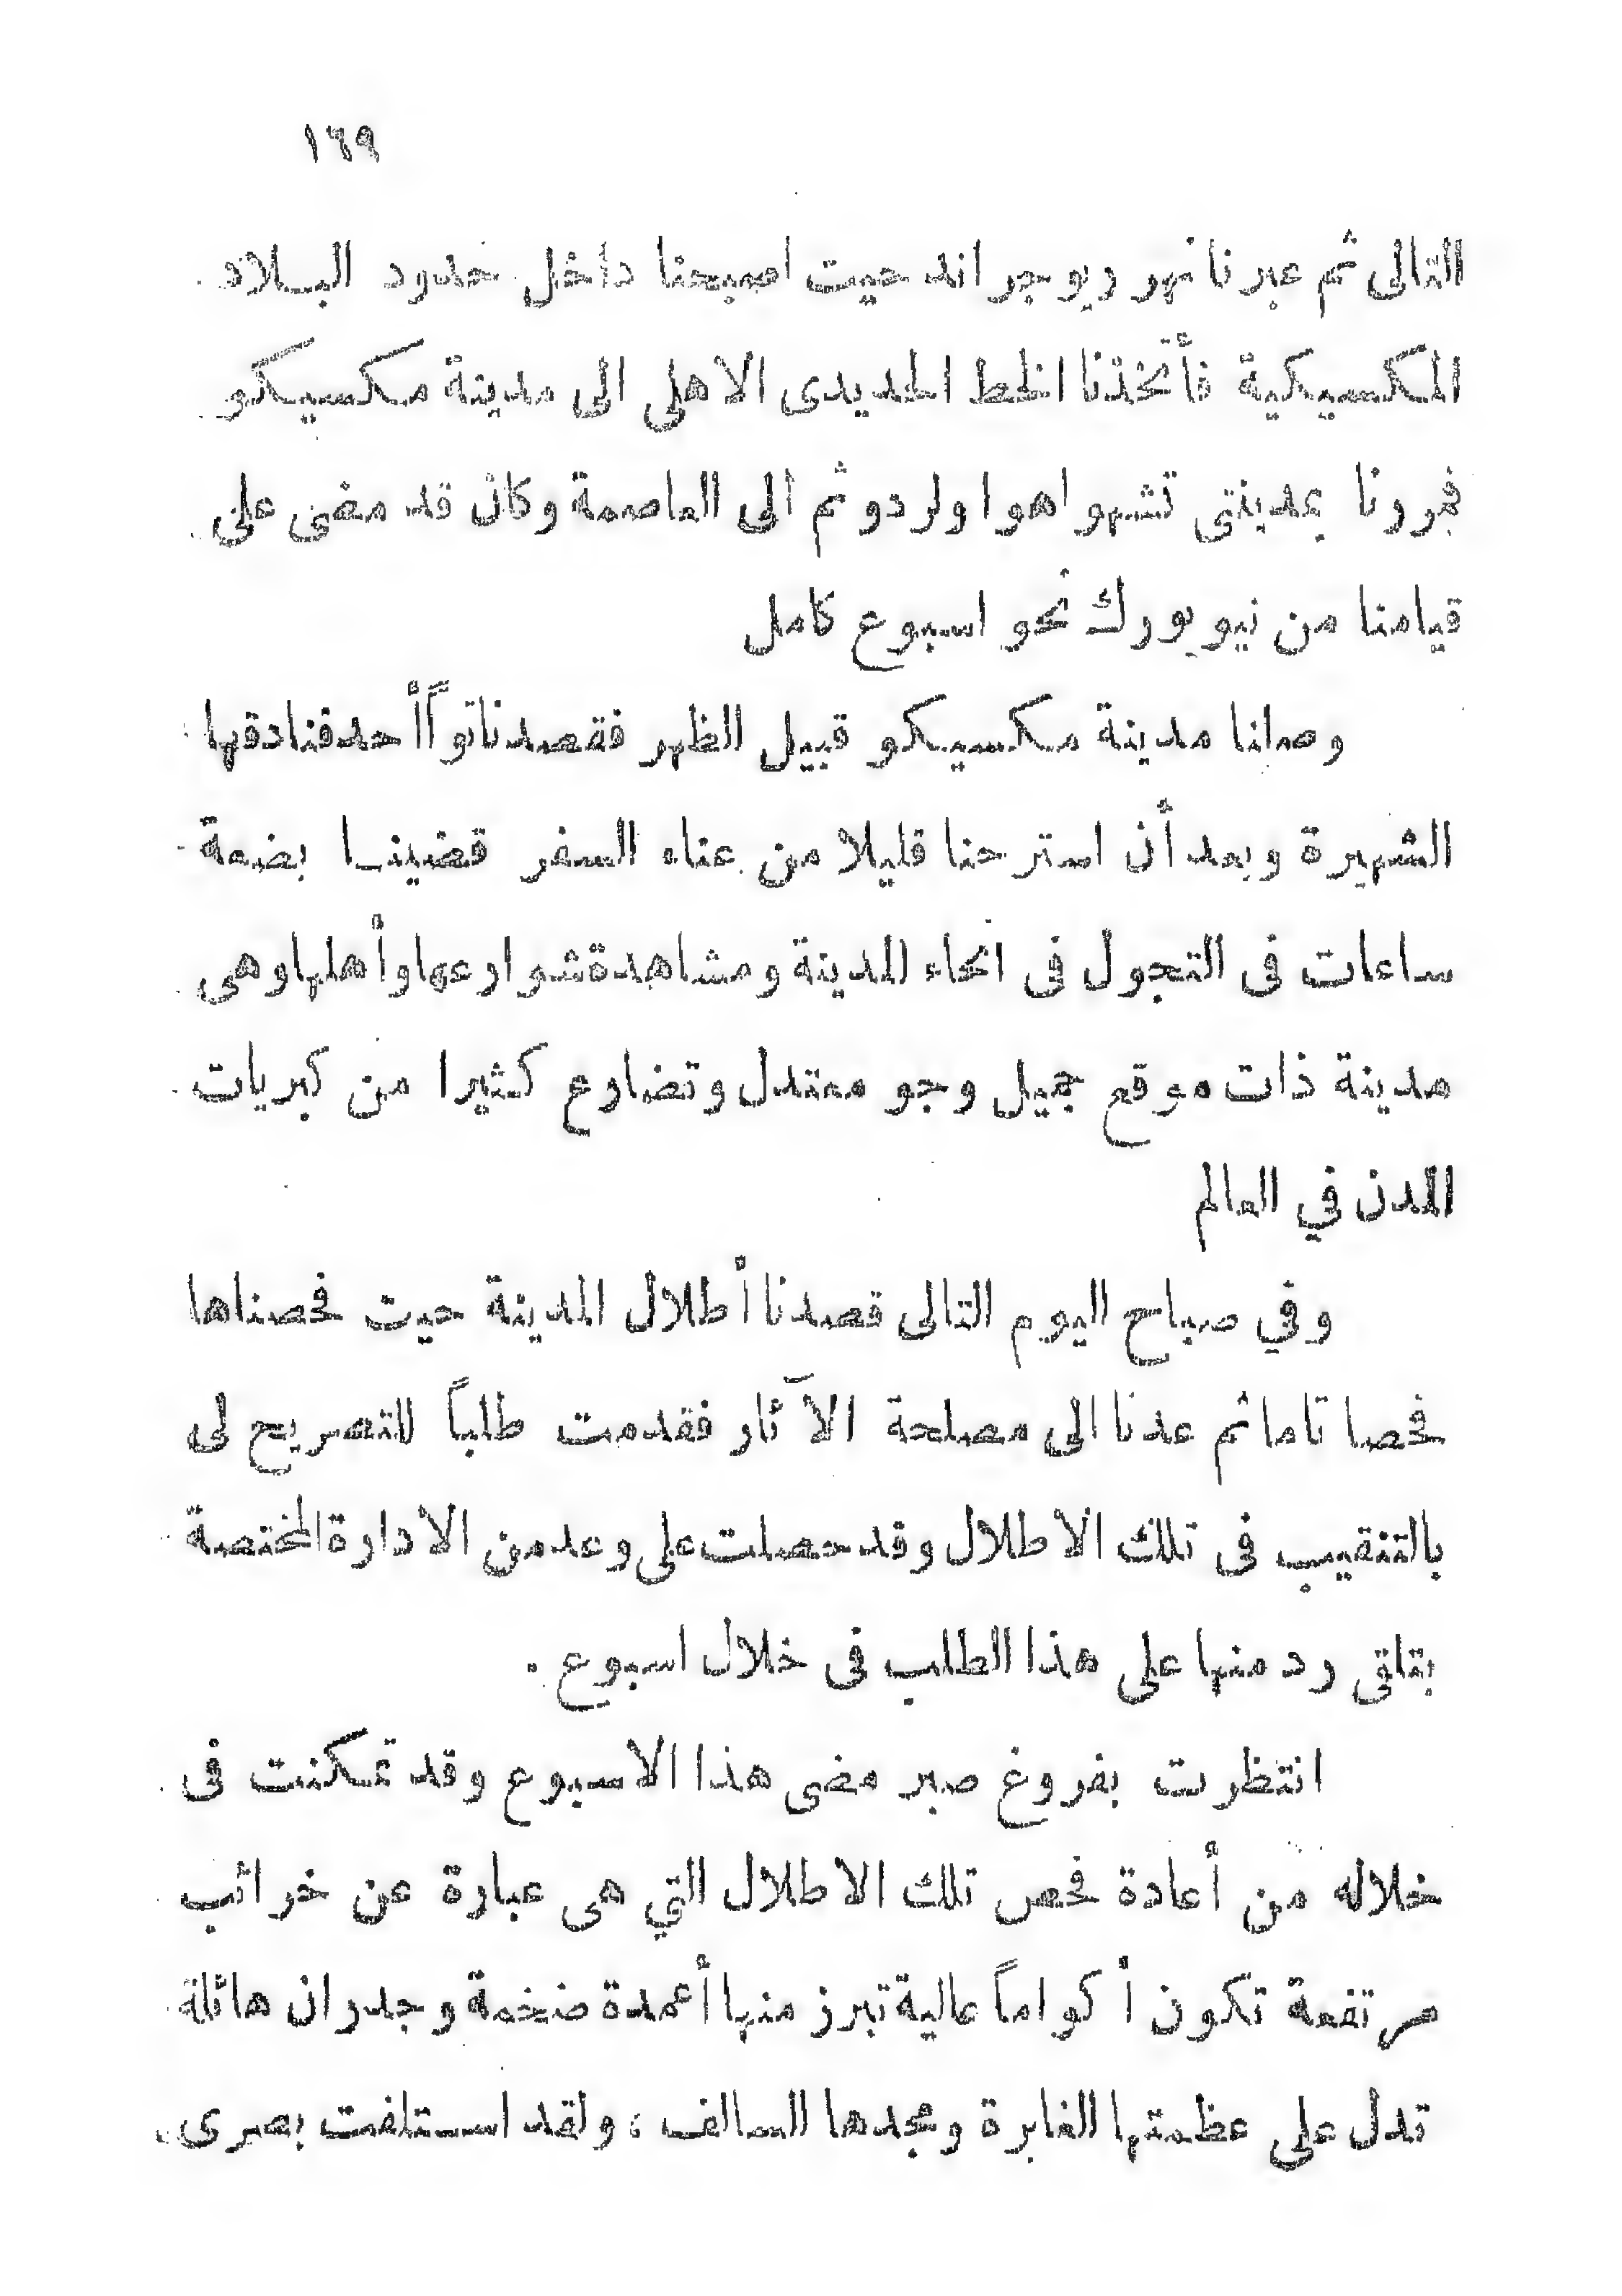 ١٦٩
التالى ثم عبرنا نهر ريو جراند حيت اصبحنا داخل حدود البلاد
المكسيكية فأتخذنا الخط الحديدى الاهلى الى مدينة مكسيكو
فمررنا بمدينتى تشهواهوا ولردو ثم الى العاصمة وكان قد مضى على
قيامنا من نيو يورك نحو اسبوع كامل
وصلنا مدينة مكسيكو قبيل الظهر فقصدنا تواً أحد فنادقها
الشهيرة وبعد أن استرحنا قليلا من عناء السفر قضينا بضعة
ساعات فى التجول فى انحاء المدينة ومشاهدة شوارعها وأهلها وهى
مدينة ذات موقع جميل وجو معتدل وتضارع كثيرا من كبريات
المدن في العالم
وفي صباح اليوم التالى قصدنا أطلال المدينة حيت فحصناها
فحصا تاما ثم عدنا الى مصلحة الآثار فقدمت طلباً للتصريح لى
بالتنقيب فى تلك الاطلال وقد حصلت على وعد من الادارة المختصة
بتلقى رد منها على هذا الطلب فى خلال اسبوع .
انتظرت بفروغ صبر مضى هذا الاسبوع وقد تمكنت فى
خلاله من أعادة فحص تلك الاطلال التي هى عبارة عن خرائب
مرتفعة تكون أكواماً عالية تبرز منها أعمدة ضخمة وجدران هائلة
تدل على عظمتها الغابرة ومجدها السالف ، ولقد استلفت بصرى